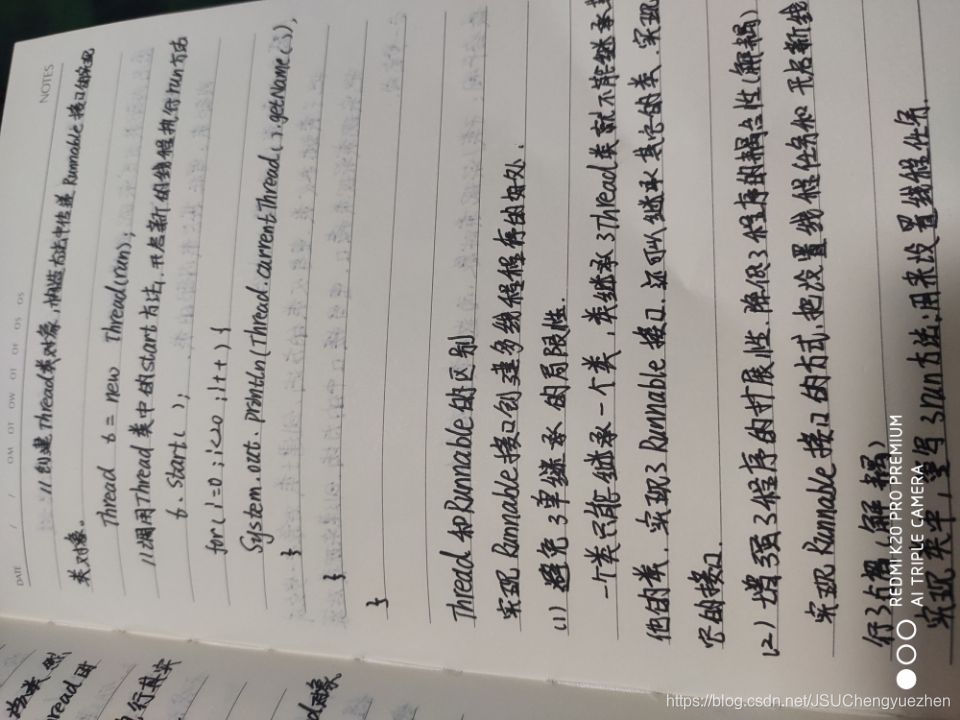 NOTES
DATE / / OM OT OW OT OF OS OS
//创建Thread类对象,构造方法中传递Runnable接口的实现
类对象。
Thread t = new Thread(run);
//调用Thread类中的start方法,开启新的线程执行run方法
t.start();
for(i=0;i<20;i++){
System.out.println(Thread.currentThread().getName());
}
}
}
Thread和Runnable的区别
实现Runnable接口创建多线程程序的好处.
(1)避免了单继承的局限性.
一个类只能继承一个类,类继承了Thread类就不能继承其
他的类,实现了Runnable接口,还可以继承其它的类,实现
它的接口.
(2)增强了程序的扩展性,降低了程序的耦合性(解耦)
实现Runnable接口的方式,把设置线程任务和开启新线
行了分离(解耦)
实现类中,重写了run方法:用来设置线程任务.
hread
行其实
d对象
REDMI K20 PRO PREMIUM
AI TRIPLE CAMERA
https://blog.csdn.net/JSUChengyuezhen